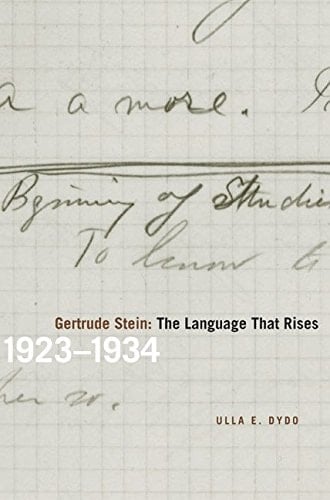 a a more.
Bginning of Studies
To know to
Gertrude Stein: The Language That Rises
1923–1934
her so.
ULLA E. DYDO